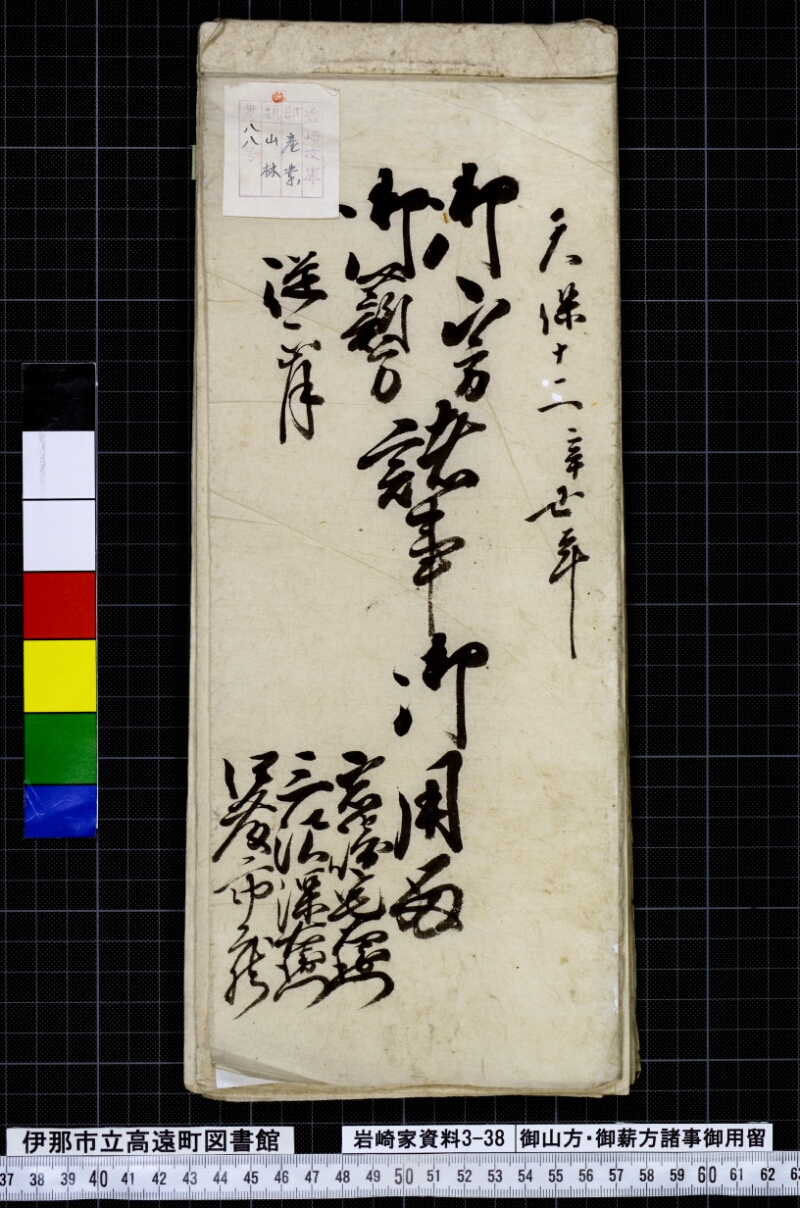 岩崎文庫
部 産業
類 山林
第八八号
天保十二辛丑年
御山方
御薪方
諸事御用留
従正月
伊那市立高遠町図書館
岩崎家資料3-38
御山方・御薪方諸事御用留
37 38 39 40 41 42 43 44 45 46 47 48 49 50 51 52 53 54 55 56 57 58 59 60 61 62 63